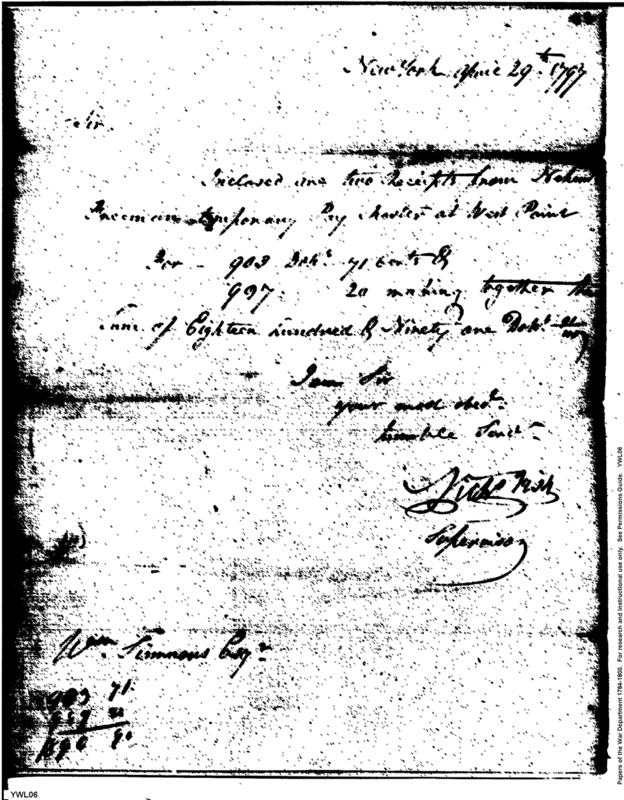 New York April 29th 1797
Sir
Inclosed are two Receipts from
Freeman temporary Pay Master at West Point
For 903 Dolrs 71 Cents &
987 20 making together the
Sum of Eighteen hundred & Ninety one Dolrs
I am Sir
your most obedt
humble Servt
Nichs Fish
Supervisor
Wm Simmons Esqr
903 71
Papers of the War Department 1784-1800. For research and instructional use only. See Permissions Guide. YWL06
YWL06